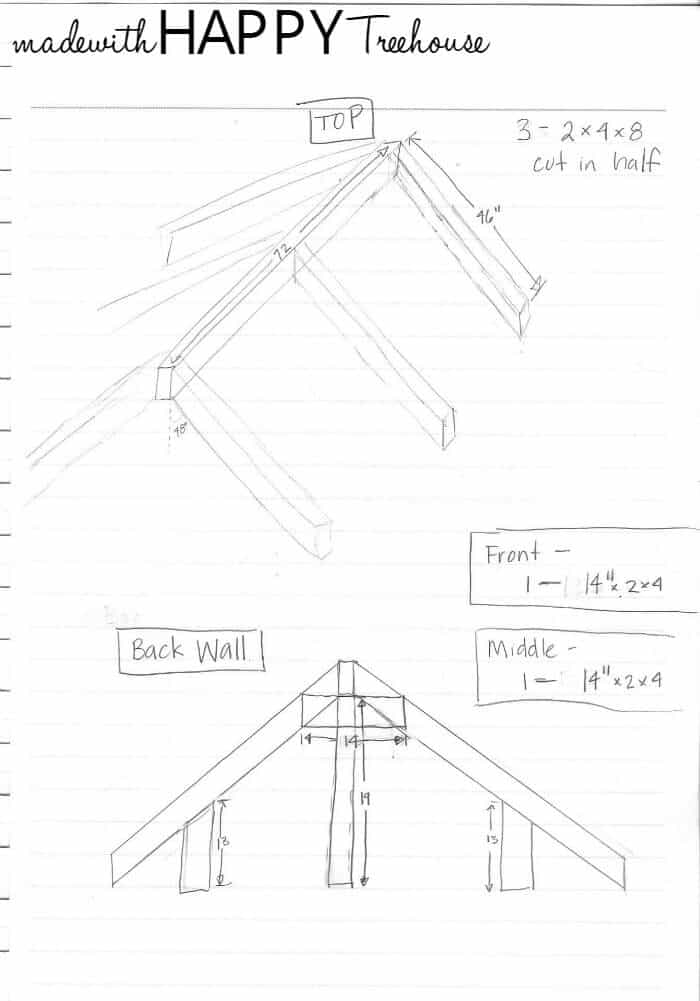 madewith HAPPY Treehouse
TOP
3 - 2×4×8
cut in half
46"
72
48°
Front -
1 - 14"× 2×4
Back Wall
Middle -
1 - 14"×2×4
14 14
19
13
13